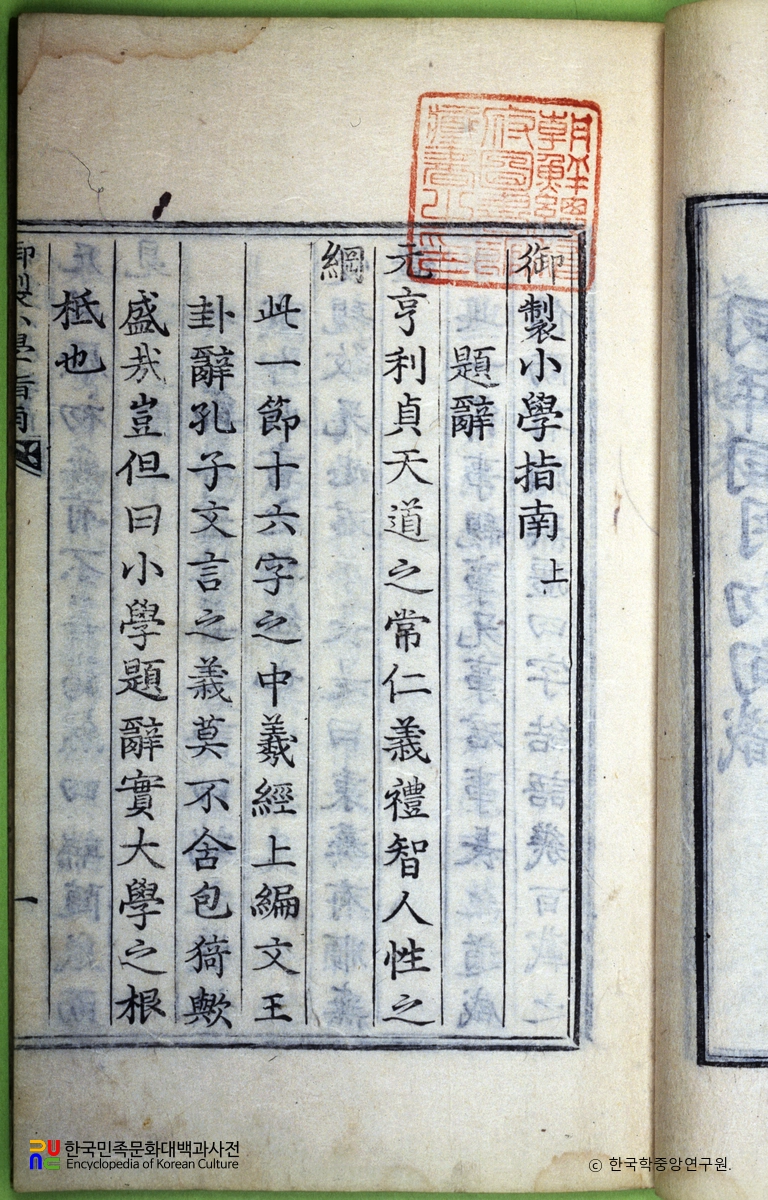 御製小學指南上
題辭
元亨利貞天道之常仁義禮智人性之
綱
此一節十六字之中羲經上編文王
卦辭孔子文言之義莫不含包猗歟
盛哉豈但曰小學題辭實大學之根
柢也
御製小學指南
一
朝鮮總督
府圖書館
藏書之印
한국민족문화대백과사전
Encyclopedia of Korean Culture
© 한국학중앙연구원.